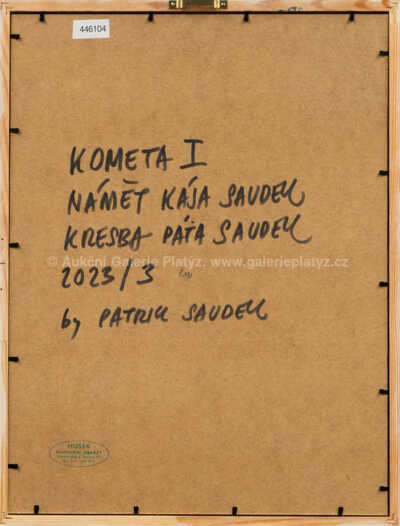 446104
KOMETA I
NÁMĚT KÁJA SAUDEK
KRESBA PÁŤA SAUDEK
© Aukční Galerie Platýz, www.galerieplatyz.cz
2023/3
by PATRIK SAUDEK